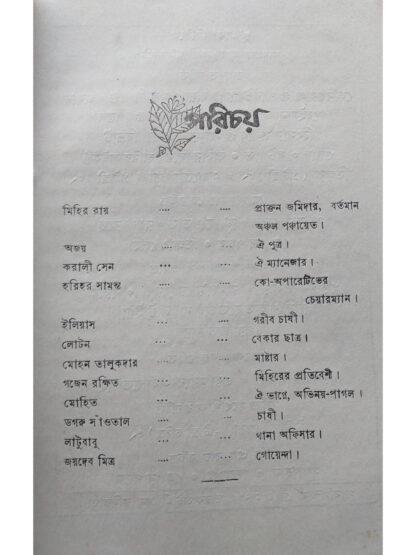 পরিচয়
মিহির রায় .... .... প্রাক্তন জমিদার, বর্তমান
অঞ্চল পঞ্চায়েত।
অজয় .... .... ঐ পুত্র।
করালী সেন ... ... ঐ ম্যানেজার।
হরিহর সামন্ত .... .... কো-অপারেটিভের
চেয়ারম্যান।
ইলিয়াস .... .... গরীব চাষী।
লোটন ... ... বেকার ছাত্র।
মোহন তালুকদার ... ... মাষ্টার।
গজেন রক্ষিত ... ... মিহিরের প্রতিবেশী।
মোহিত ... ... ঐ ভাগ্নে, অভিনয়-পাগল।
ডগরু সাঁওতাল ... ... চাষী।
লাটুবাবু ... ... থানা অফিসার।
জয়দেব মিত্র ... ... গোয়েন্দা।